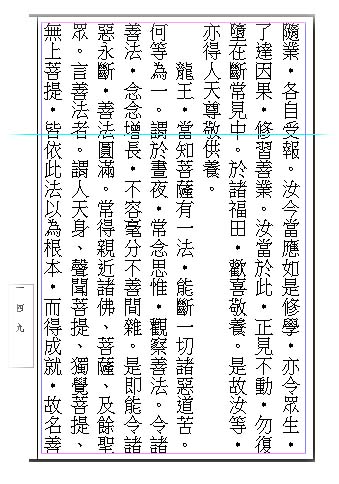 隨業・各自受報。汝今當應如是修學・亦令眾生・
了達因果・修習善業。汝當於此・正見不動・勿復
墮在斷常見中。於諸福田・歡喜敬養。是故汝等・
亦得人天尊敬供養。
龍王・當知菩薩有一法・能斷一切諸惡道苦。
何等為一。謂於晝夜・常念思惟・觀察善法。令諸
善法・念念增長・不容毫分不善間雜。是即能令諸
惡永斷・善法圓滿。常得親近諸佛、菩薩、及餘聖
眾。言善法者。謂人天身、聲聞菩提、獨覺菩提、
無上菩提・皆依此法以為根本・而得成就・故名善
一四九